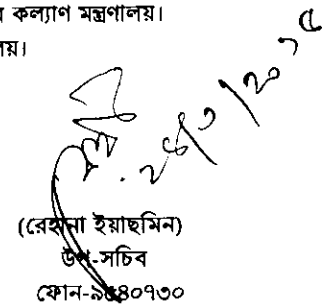 কল্যাণ মন্ত্রণালয়।
লয়।
(রেহানা ইয়াছমিন)
উপ-সচিব
ফোন-৯৫৪০৭৩০